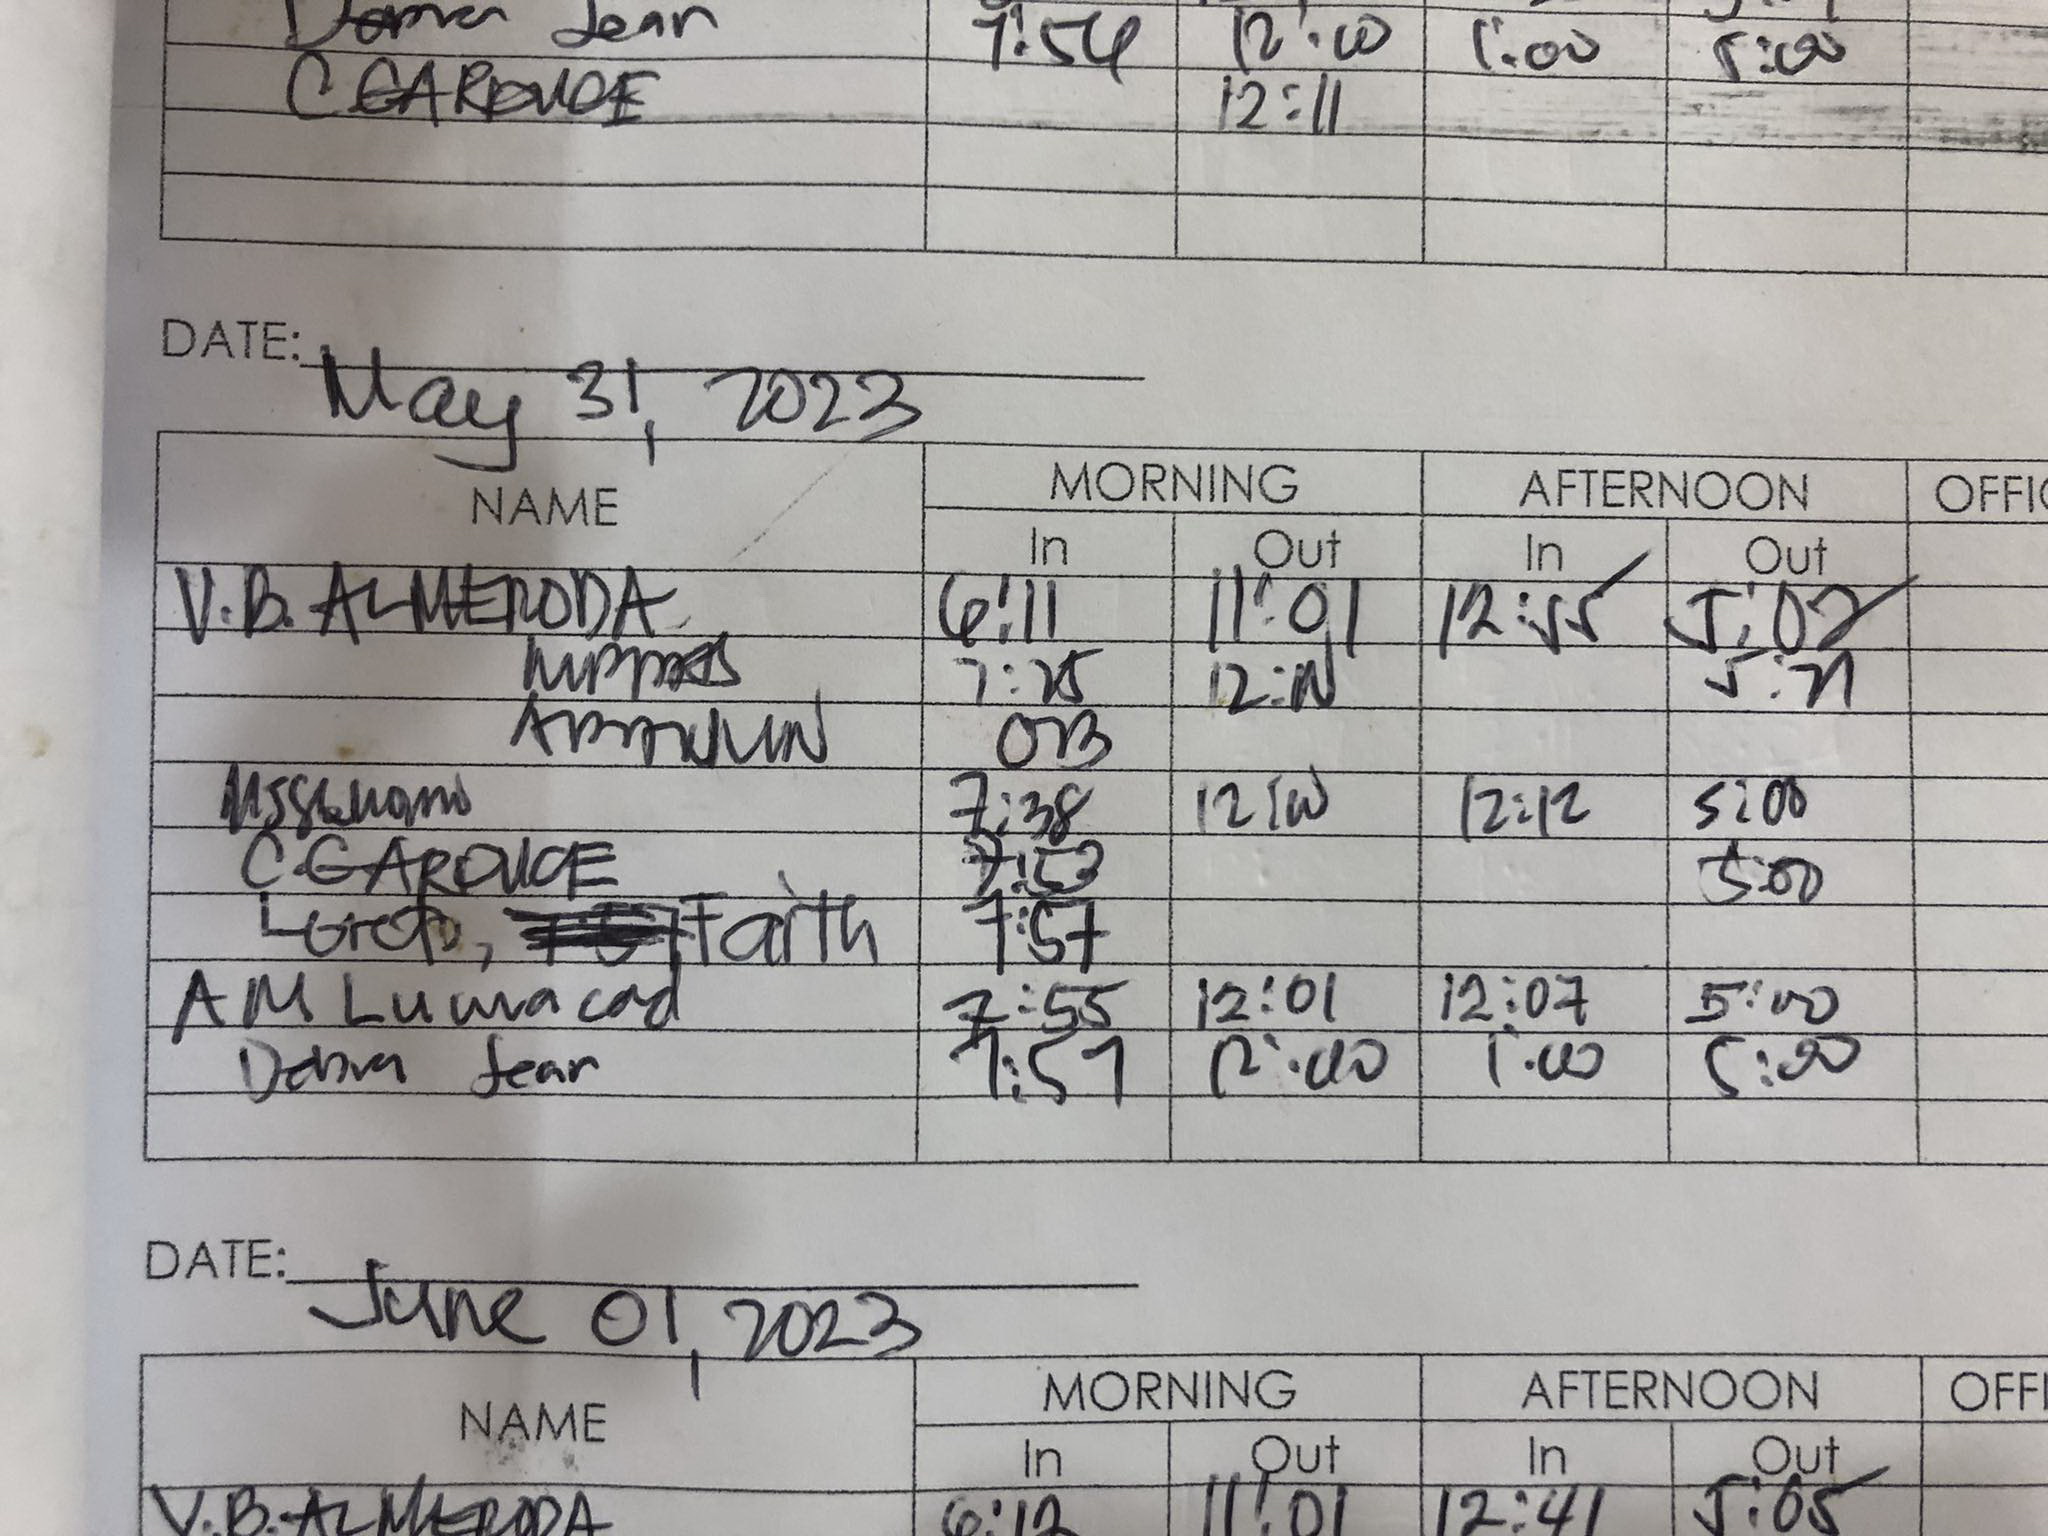 Debra Jean 7:54 12:00 1:00 5:00
C. GARDUCE 12:11
DATE: May 31, 2023
NAME MORNING AFTERNOON OFFIC
In Out In Out
V.B. ALMERODA 6:11 11:01 12:55 5:02
7:25 5:21
OB
7:38 12:00 12:12 5:00
C. GARDUCE 7:53 5:00
Loreto, Faith 7:57
A M Lumacad 7:55 12:01 12:07 5:00
Debra Jean 7:57 12:00 1:00 5:00
DATE: June 01, 2023
NAME MORNING AFTERNOON OFFI
In Out In Out
V.B. ALMERODA 6:12 11:01 12:41 5:05